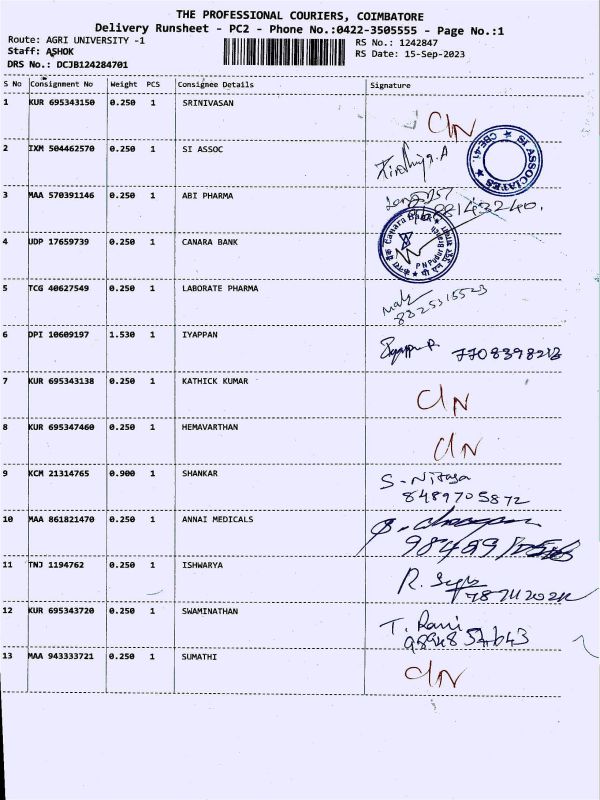 THE PROFESSIONAL COURIERS, COIMBATORE
Delivery Runsheet - PC2 - Phone No.:0422-3505555 - Page No.:1
Route: AGRI UNIVERSITY -1
RS No.: 1242847
Staff: ASHOK
RS Date: 15-Sep-2023
DRS No.: DCJB124284701
S No Consignment No Weight PCS Consignee Details Signature
1 KUR 695343150 0.250 1 SRINIVASAN
2 IXM 504462570 0.250 1 SI ASSOC
SI ASSOCIATES CBE-41
3 MAA 570391146 0.250 1 ABI PHARMA
4 UDP 17659739 0.250 1 CANARA BANK
Canara Bank
5 TCG 40627549 0.250 1 LABORATE PHARMA
8825315523
6 DPI 10609197 1.530 1 IYAPPAN
7708398213
7 KUR 695343138 0.250 1 KATHICK KUMAR
8 KUR 695347460 0.250 1 HEMAVARTHAN
9 KCM 21314765 0.900 1 SHANKAR
8489705872
10 MAA 861821470 0.250 1 ANNAI MEDICALS
11 TNJ 1194762 0.250 1 ISHWARYA
12 KUR 695343720 0.250 1 SWAMINATHAN
T. Rani
13 MAA 943333721 0.250 1 SUMATHI